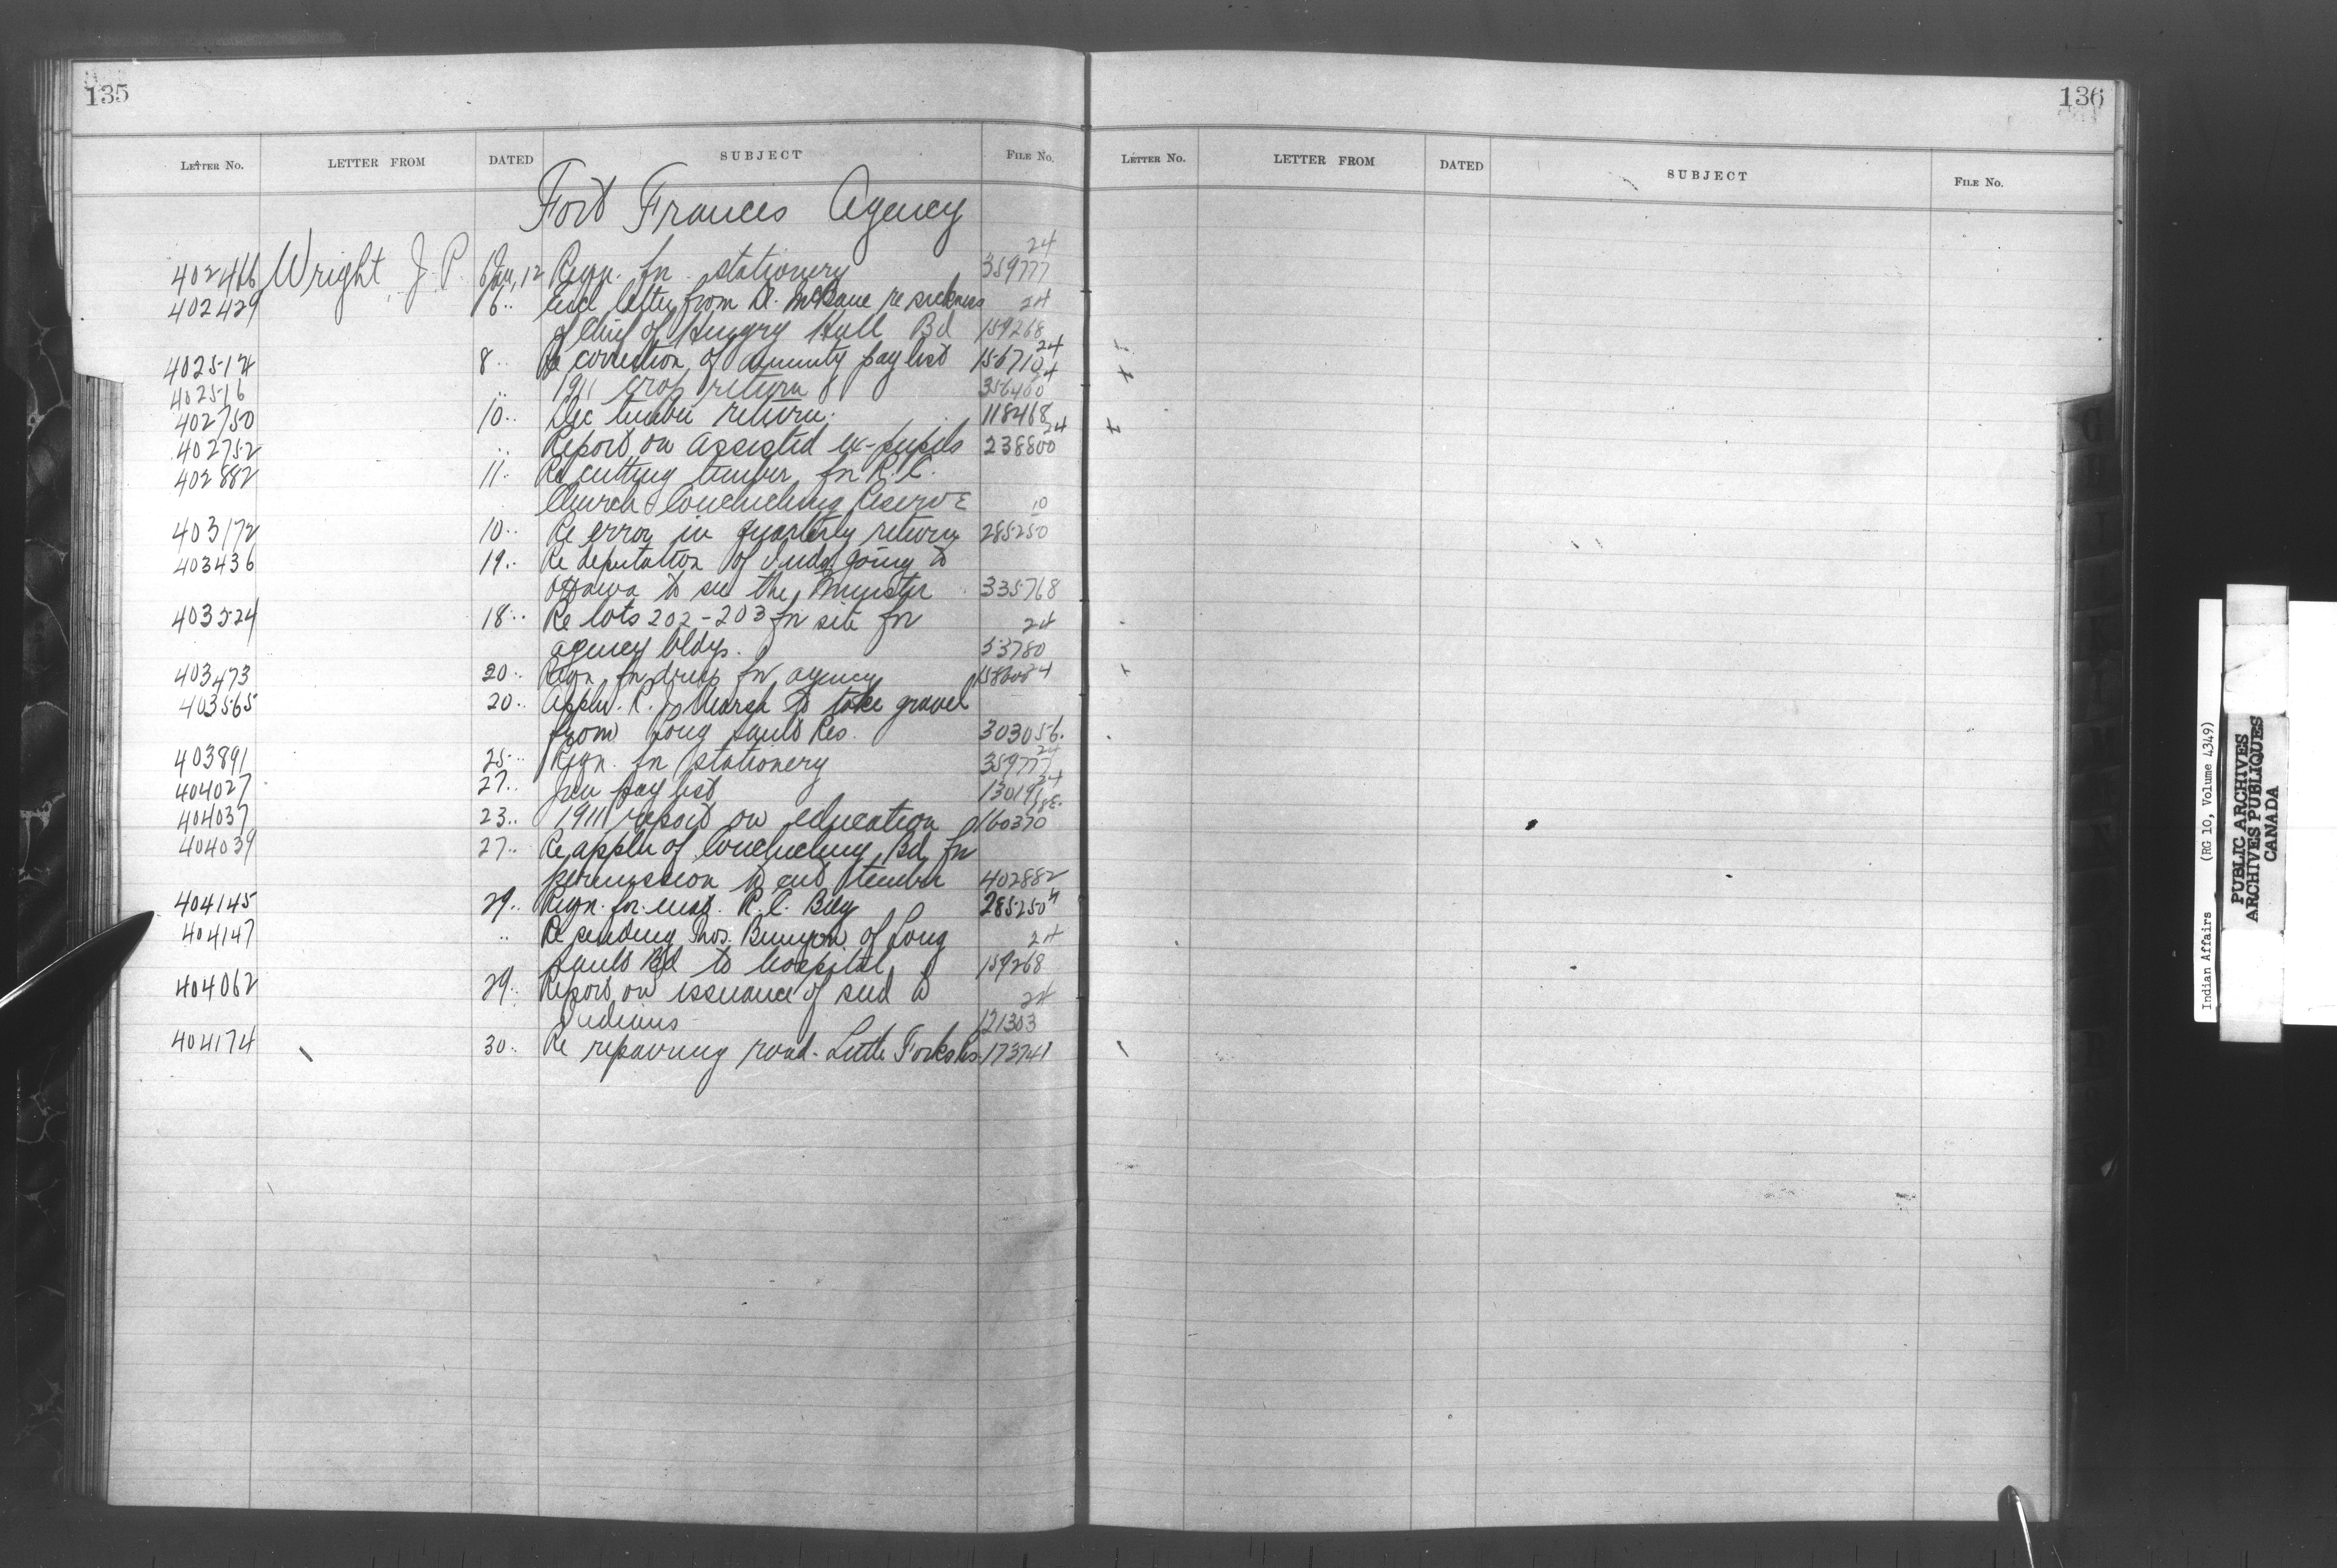 135
LETTER NO. LETTER FROM DATED SUBJECT FILE NO.
Fort Frances Agency
24
402416 Wright, J. P. 6 Jan, 12 Reqn. for stationery 359777
402429 6.. Encl letter from Dr. McBane re sickness 24
of Chief of Hungry Hall Bd 159268
402514 8.. Re correction of annuity pay list 156710 24
402516 .. 1911 crop return 356400 24
402750 10.. Dec timber return. 118468
402752 .. Report on assisted ex-pupils 238800 24
402882 11.. Re cutting timber for R.C.
Church Couchiching Reserve 10
403172 10.. Re error in quarterly return 285250
403436 19.. Re deputation of Inds. going to
Ottawa to see the Minister 335768
403524 18.. Re lots 202-203 for site for 24
agency bldgs. 53780
403473 20.. Reqn. for drugs for agency
403565 20.. Appln. R. J. Marsh to take gravel
from Long Sault Res. 303056.
403891 25.. Reqn. for stationery 359777 24
404027 27.. Jan pay list
404037 23.. 1911 report on education 160370
404039 27.. Re appln of Couchiching Bd. for
permission to cut timber 402882
404145 29.. Reqn. for R.C. 285250
404147 .. Re sending Thos. Bunyon of Long 24
Sault Bd to hospital 159268
404062 29.. Report on issuance of seed to 24
Indians 121303
404174 30.. Re repairing road - Little Forks Res. 173741
136
LETTER NO. LETTER FROM DATED SUBJECT FILE NO.
Indian Affairs (RG 10, Volume 4349)
PUBLIC ARCHIVES
ARCHIVES PUBLIQUES
CANADA